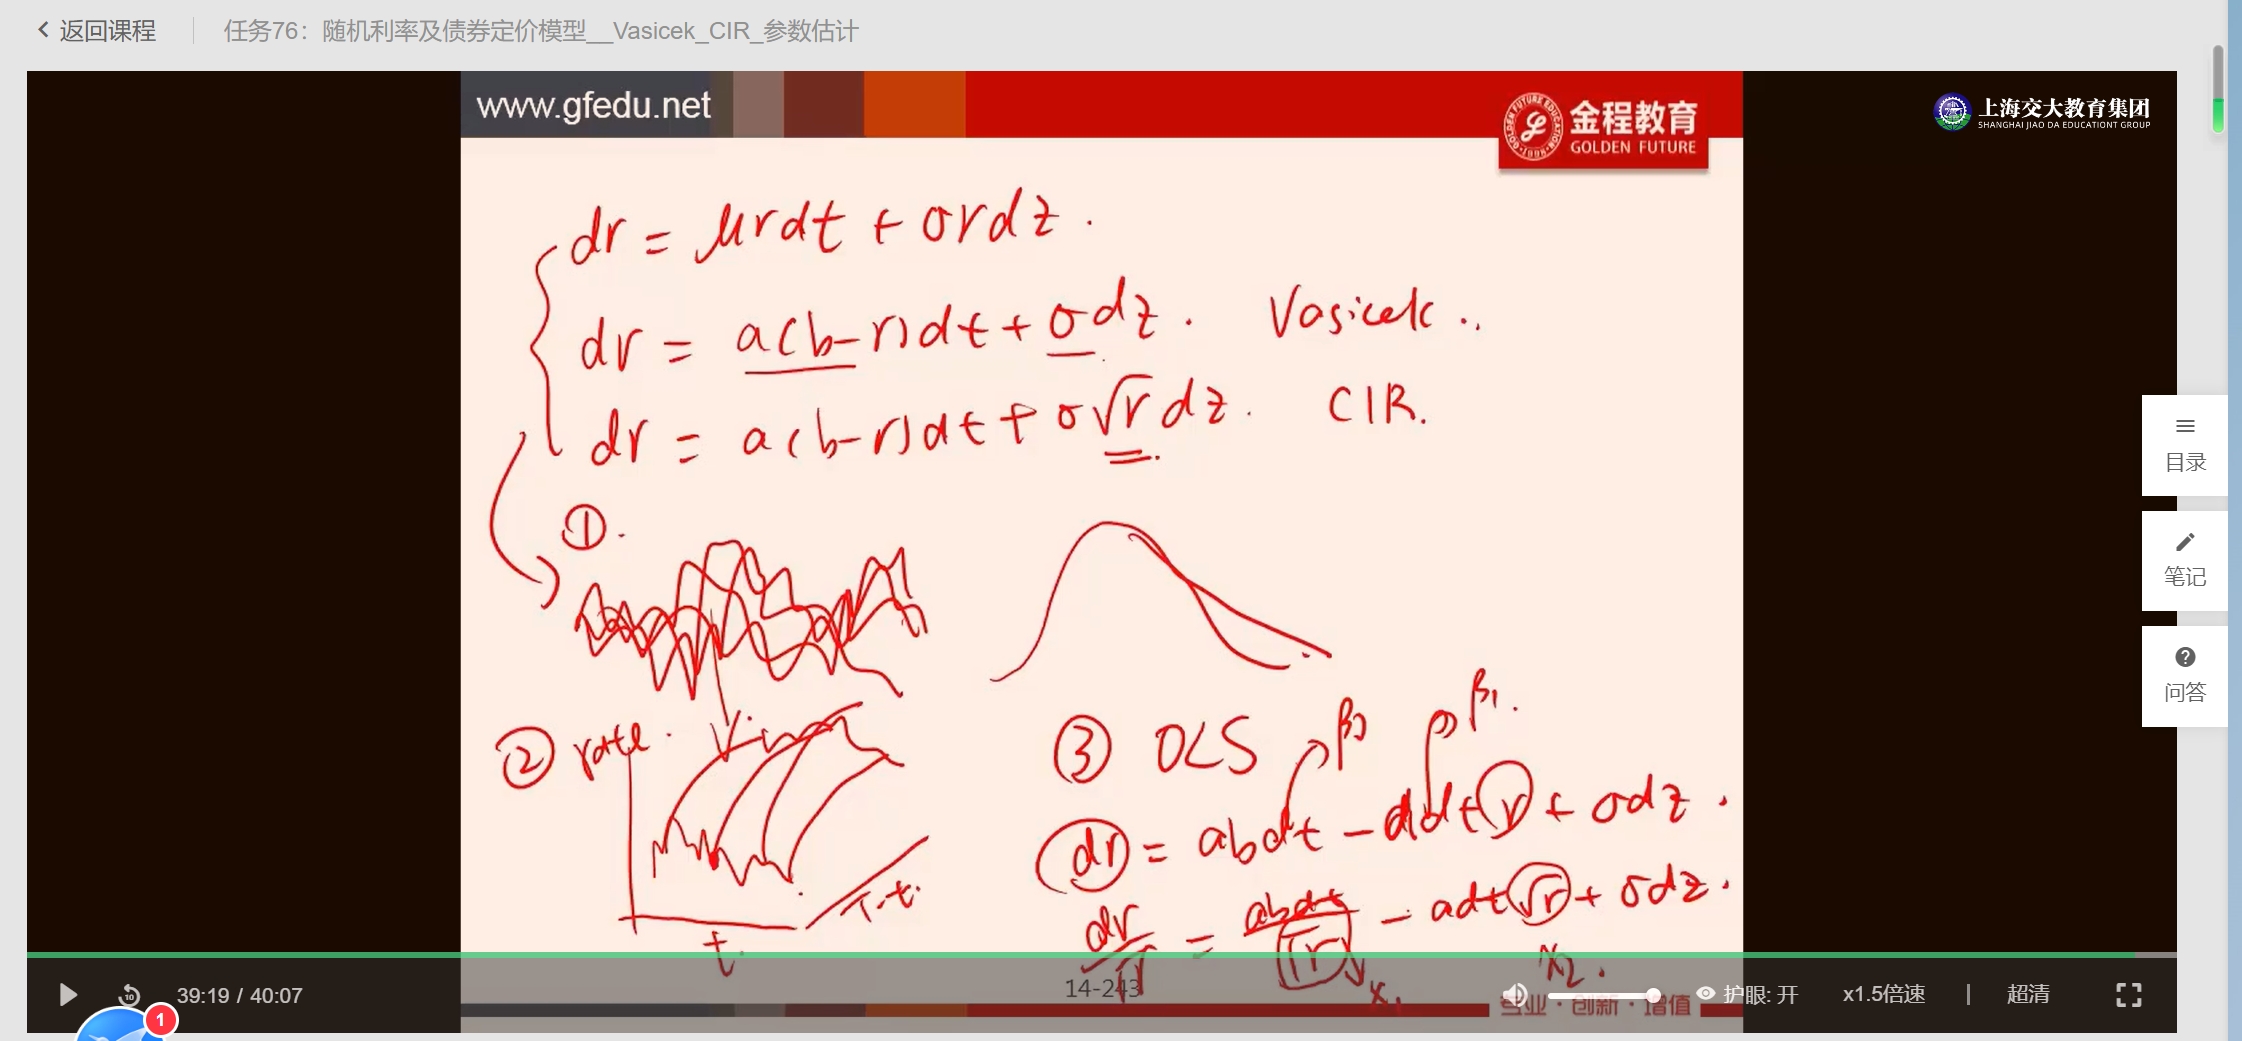 返回课程
任务76：随机利率及债券定价模型__Vasicek_CIR_参数估计
www.gfedu.net
金程教育
GOLDEN FUTURE
上海交大教育集团
SHANGHAI JIAO DA EDUCATIONT GROUP
dr = μrdt + σrdz.
dr = a(b-r)dt + σdz. Vasicek..
dr = a(b-r)dt + σ√r dz. CIR.
①.
② rate.
t.
T-t.
③ OLS
β1.
dr = abdt - adt r + σdz.
dr/√r = abdt/√r - adt√r + σdz.
x1
x2.
目录
笔记
问答
39:19 / 40:07
14-243
专业·创新·增值
护眼: 开
x1.5倍速
超清
10
1